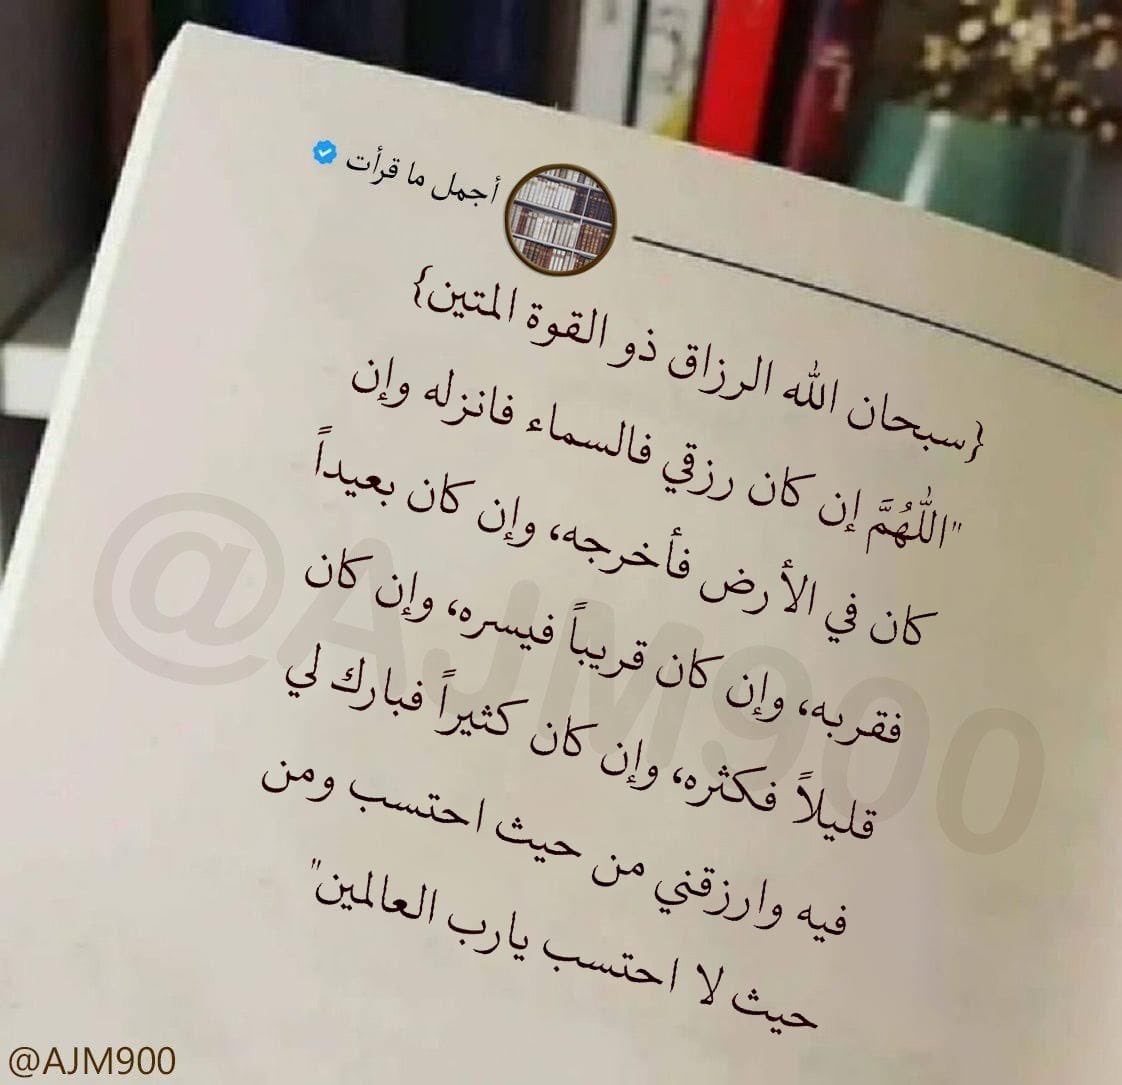 أجمل ما قرأت
{سبحان الله الرزاق ذو القوة المتين}
"اللَّهُمَّ إن كان رزقي فالسماء فانزله وإن
كان في الأرض فأخرجه، وإن كان بعيداً
فقربه، وإن كان قريباً فيسره، وإن كان
قليلاً فكثره، وإن كان كثيراً فبارك لي
فيه وارزقني من حيث احتسب ومن
حيث لا احتسب يارب العالمين"
@AJM900
@AJM900